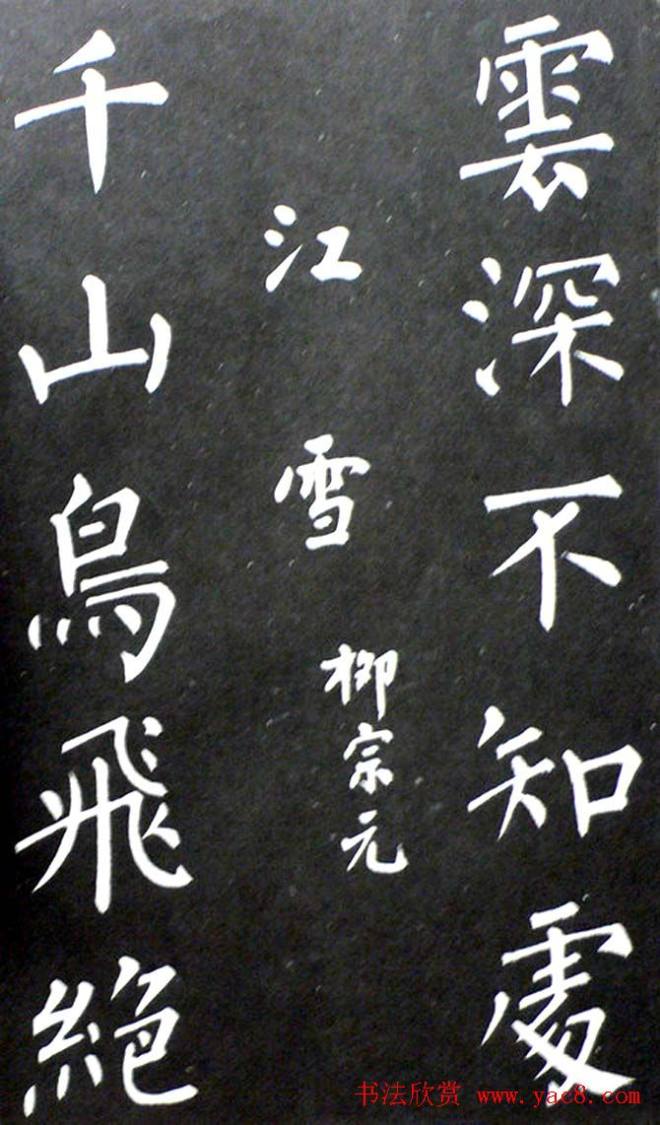 雲深不知處
江雪
柳宗元
千山鳥飛絕
书法欣赏 www.yac8.com